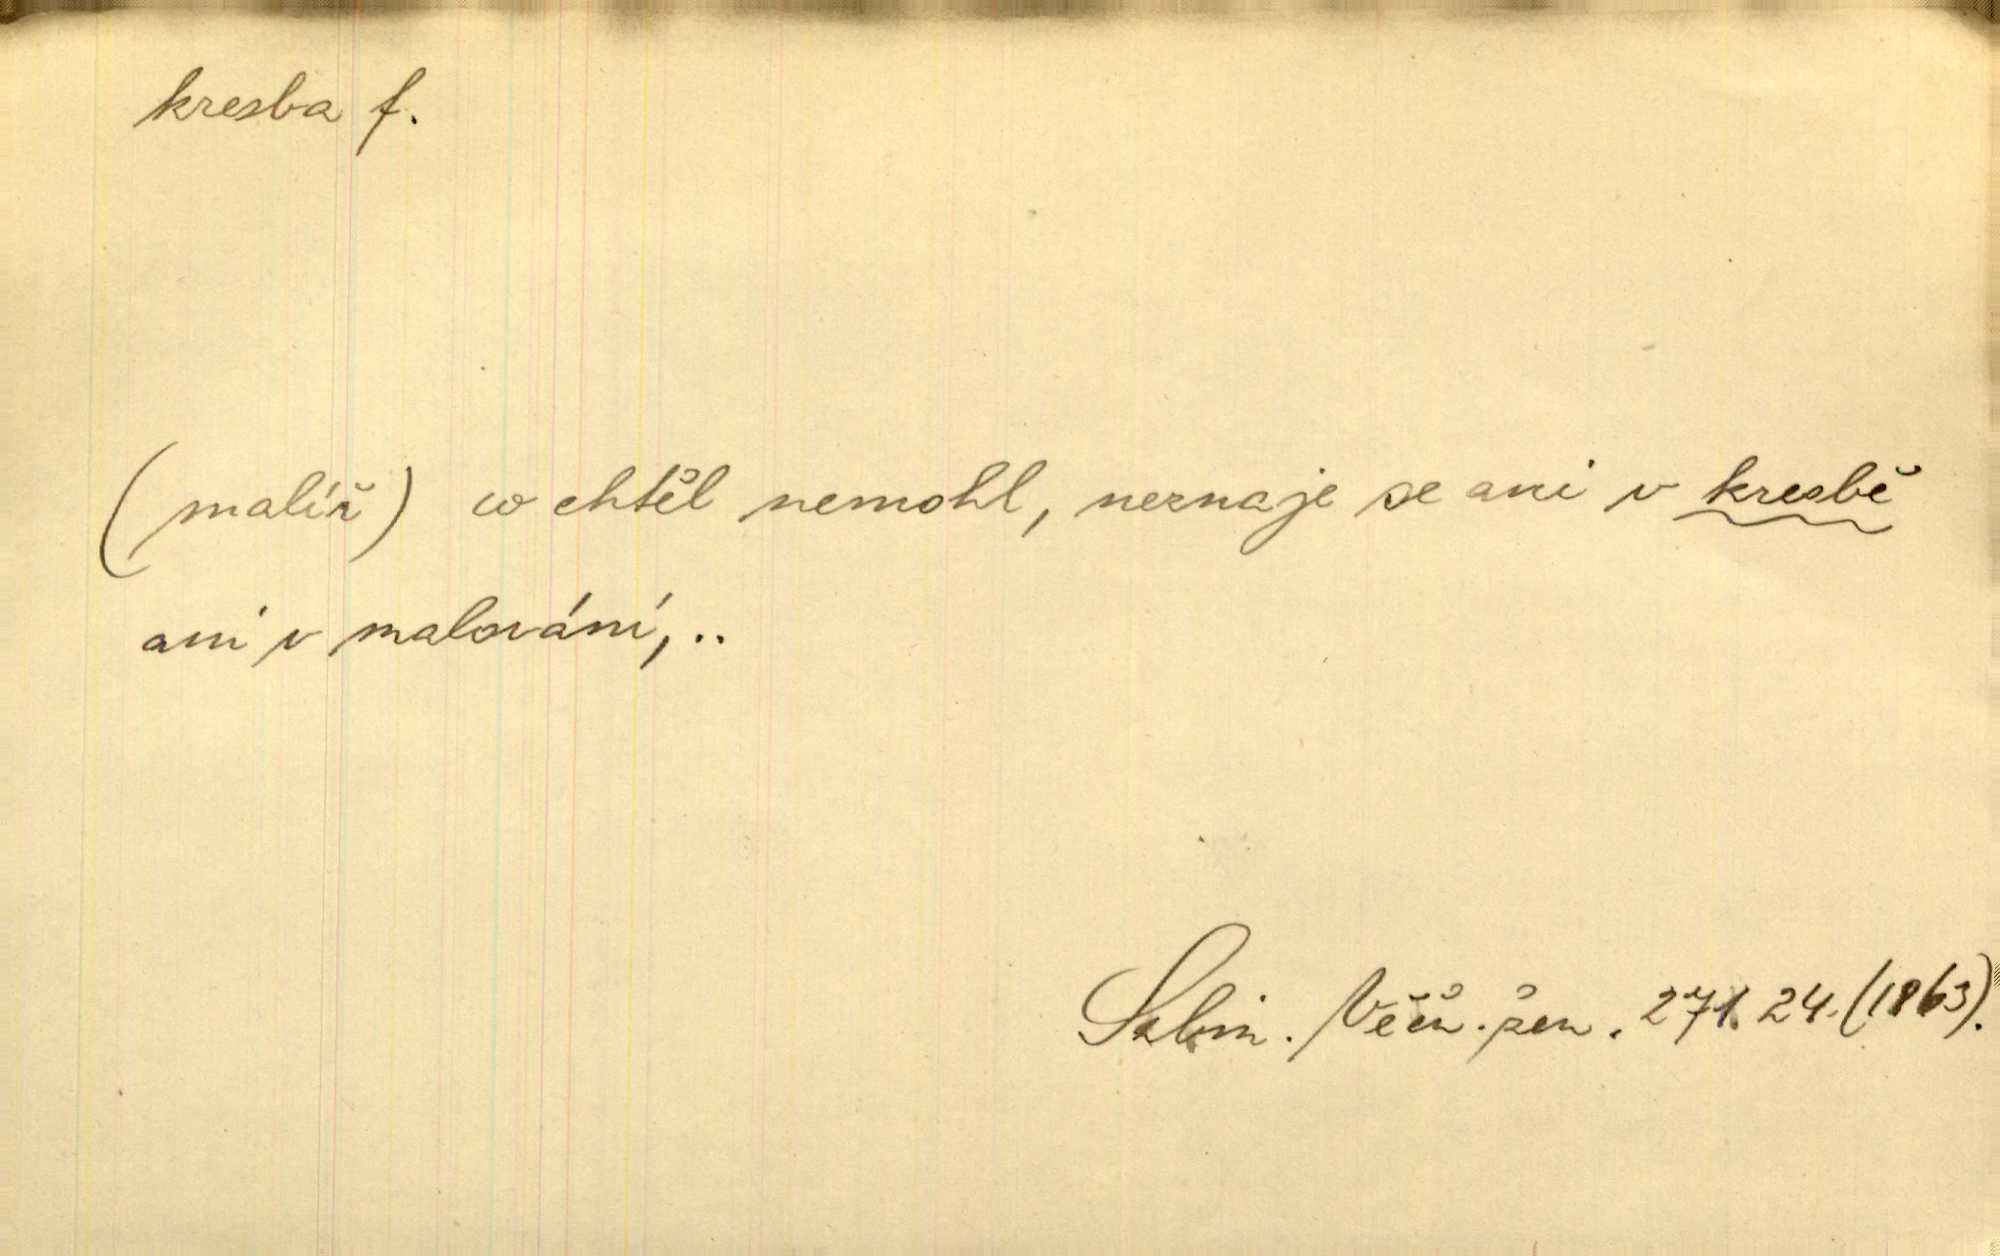 kresba f.
(malíř) co chtěl nemohl, neznaje se ani v kresbě
ani v malování, ..
Sabin. Věčň. žen. 271. 24. (1863).